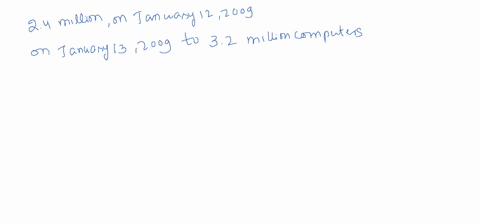 2.4 million, on January 12, 2009
on January 13, 2009 to 3.2 million computers